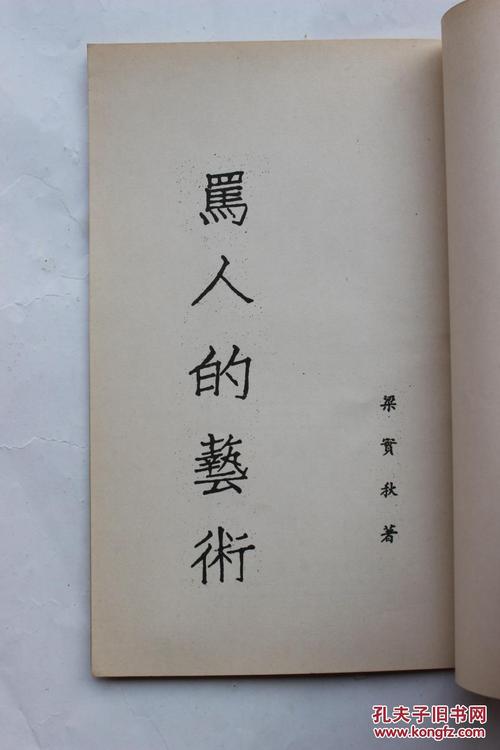 罵人的藝術
梁實秋著
孔夫子旧书网
www.kongfz.com